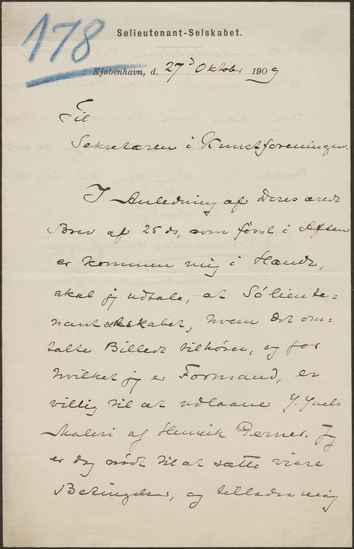 178
Søløjtnant-Selskabet.
Kjøbenhavn, d. 27d Oktober 1909
Til
Sekretæren i Kunstforeningen.
I Anledning af Deres ærede
Brev af 25 ds, som først i Aften
er kommen mig i Hænde,
skal jeg udtale, at Søliente-
nantselskabet, hvem det om-
talte Billede tilhører, og for
hvilket jeg er Formand, er
villig til at udlaane
Maleri af Henrik Gerner. Jeg
er dog nødt til at sætte visse
Betingelser, og tillader mig